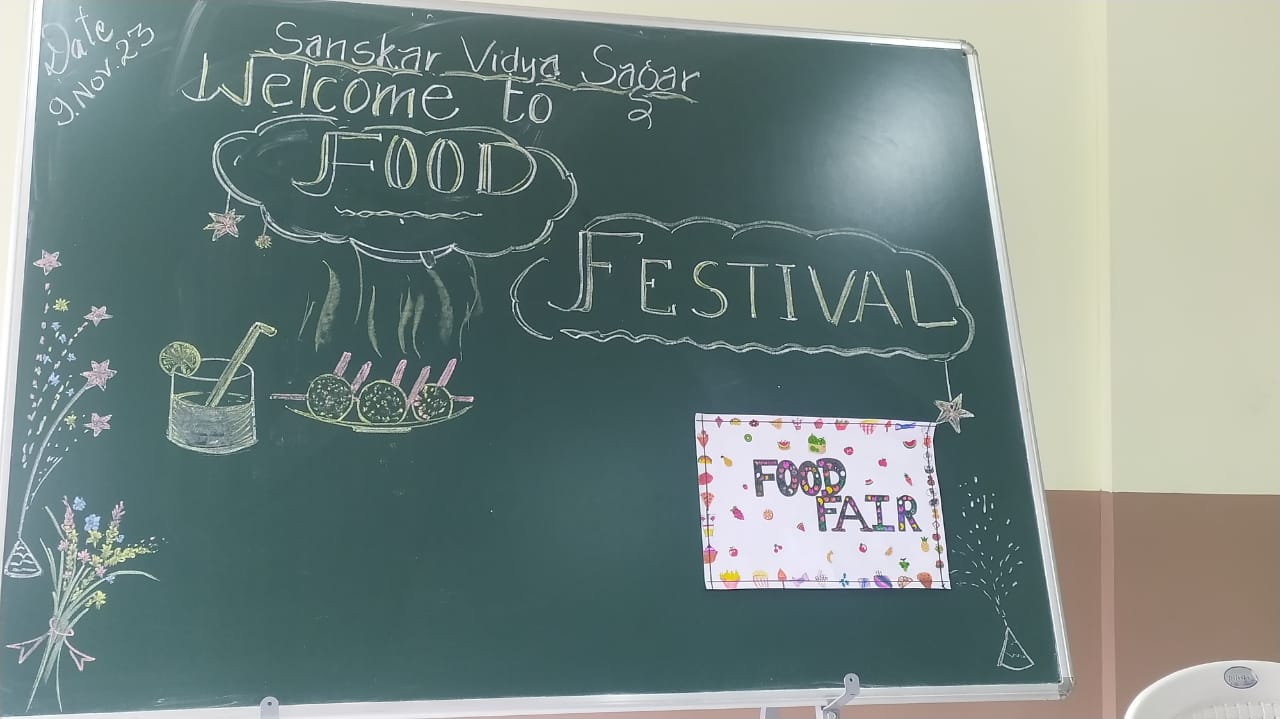 Date
9.Nov.23
Sanskar Vidya Sagar
Welcome to
FOOD
FESTIVAL
FOOD
FAIR